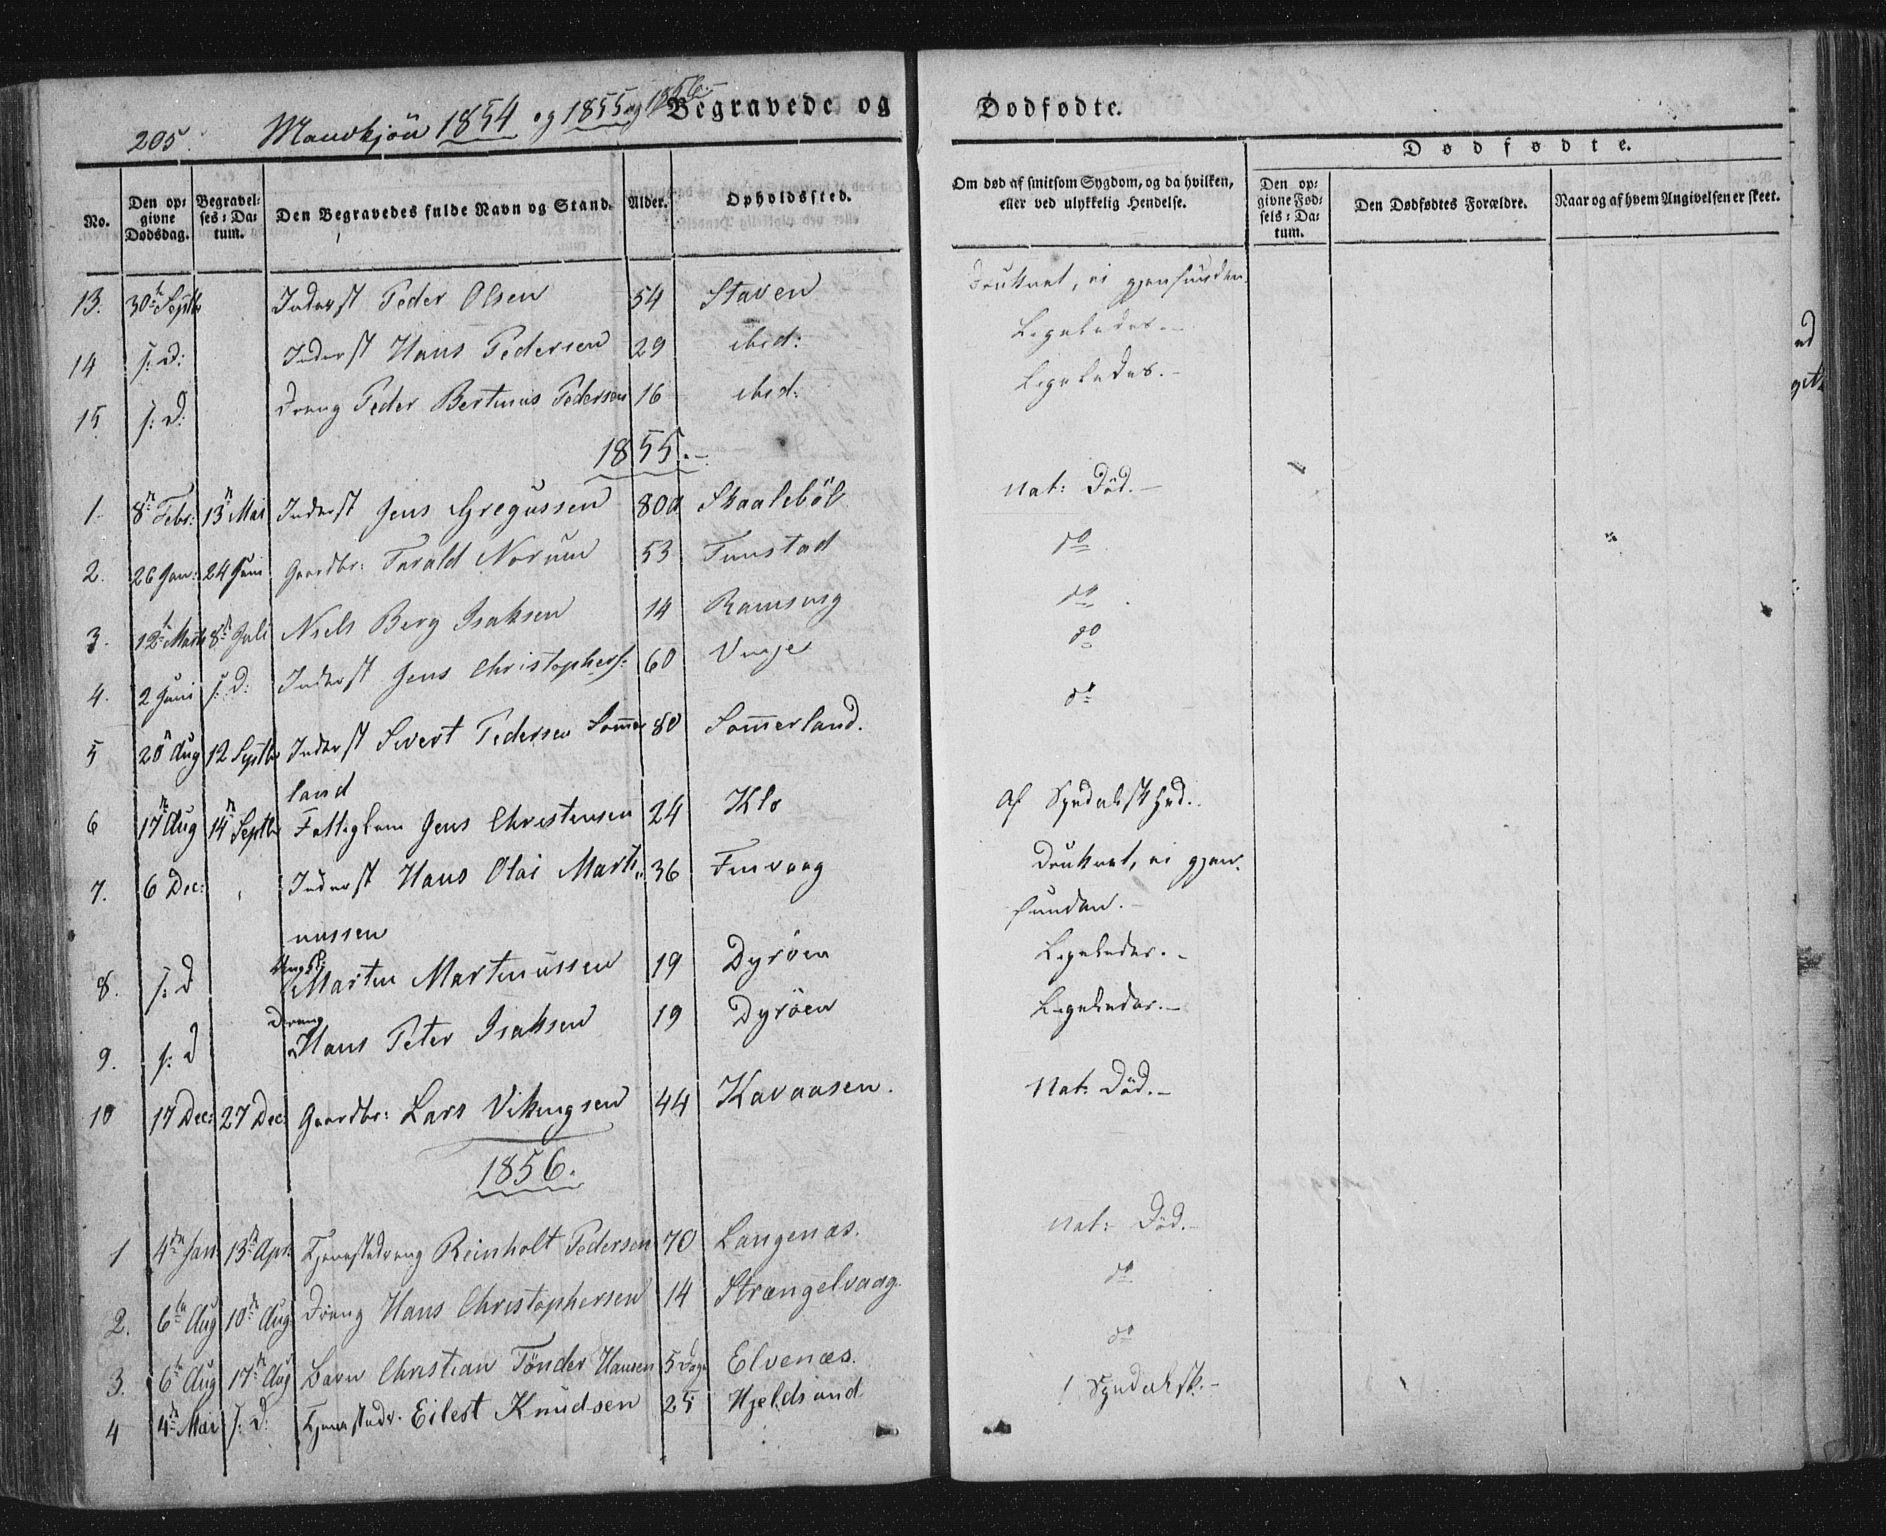 205. Mandkjøn 1854 og 1855 og 1856. Begravede og Dødfødte.
Dødfødte.
No. Den opgivne Dødsdag. Begravelses-Datum. Den Begravedes fulde Navn og Stand. Alder. Opholdssted. Om død af smitsom Sygdom, og da hvilken, eller ved ulykkelig Hendelse. Den opgivne Fødsels-Datum. Den Dødfødtes Forældre. Naar og af hvem Angivelsen er skeet.
13. 30te Septbr Inderst Peder Olsen 54 Staven Druknet, ei gjenfunden
14 s: D: Inderst Hans Pedersen 29 ibid: Ligeledes.-
15 s: D: Dreng Peder Bertinus Pedersen 16 ibid: Ligeledes.-
1855.-
1. 8de Febr: 13de Mai Inderst Jens Gregussen 80 Skaalebøl Nat: Død.-
2. 26 Jan: 24 Juni Gaardbr: Tarald Norum 53 Tunstad do
3. 12te Marts 8de Juli Niels Berg Isaksen 14 do
4. 2 Juni s: D: Inderst Jens Christophers: 60 Vinje do
5 20 Aug 12 Septbr Inderst Sivert Pedersen Sommer 80 Sommerland. do
land
6 17de Aug 14de Septbr Fattiglem Jens Christensen 24 Klo Af Spedalskhed.
7. 6 Dec: Inderst Hans Olai Marti 36 Finvaag Druknet, ei gjen-
nussen funden.-
8. s: D Ungk: Martin Martinussen 19 Dyrøen Ligeledes.-
9. s: D Dreng Hans Peter Isaksen 19 Dyrøen Ligeledes.-
10 17 Dec: 27 Dec: Gaardbr: Lars Vikingsen 44 Kavaasen. Nat: Død.-
1856.
1 4de Jan 13de Apr: Tjenestedreng Reinholt Pedersen 70 Langenæs. Nat: Død.-
2. 6te Aug 10de Aug Dreng Hans Christophersen 14 Strængelvaag. do
3. 6te Aug 17de Aug Barn Christian Tønder Hansen 5 Dage Elvenæs. do
4 4de Mai s: D: Tjenestedr. Eilert Knudsen 25 Hjeldsand Spedalsk.-